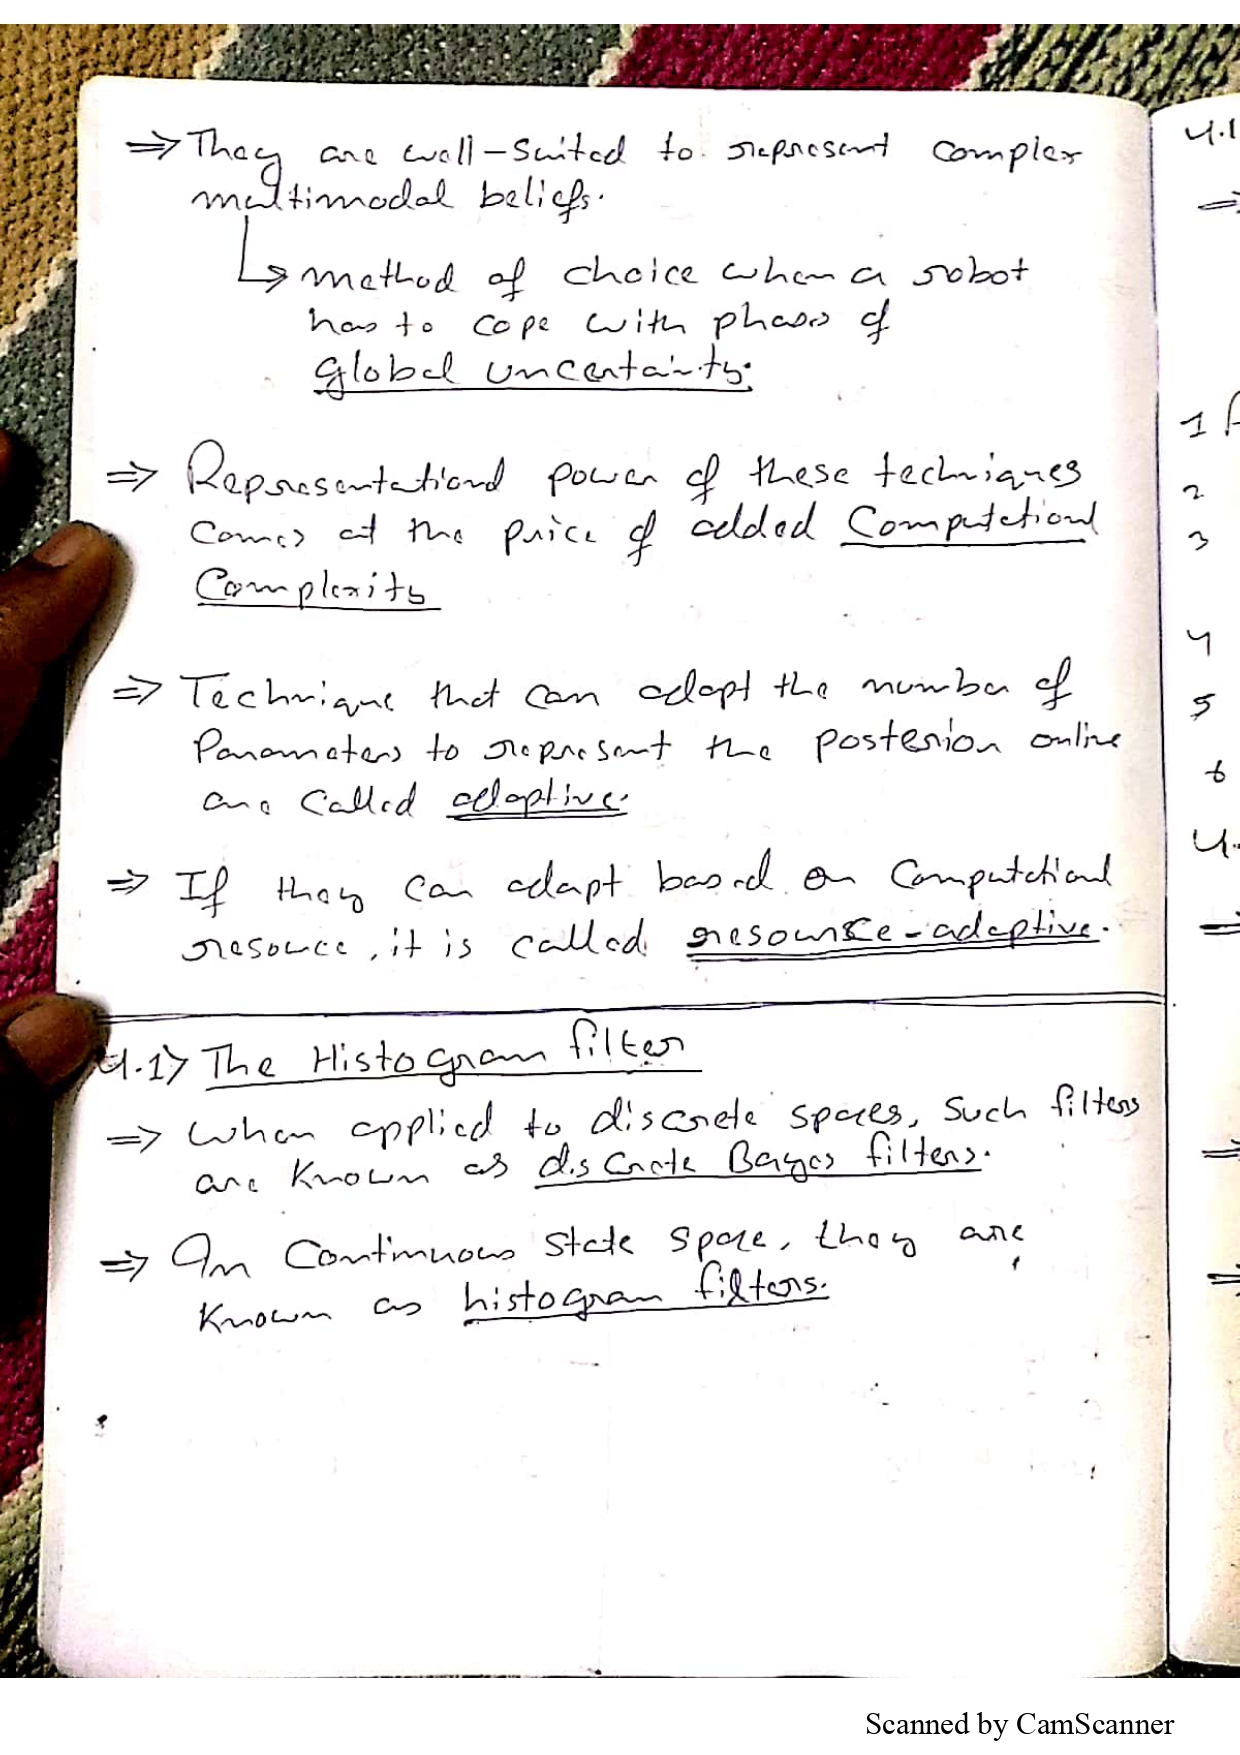 ⇒ They are well-suited to represent complex
multimodal beliefs.
↳ method of choice when a robot
has to cope with phases of
global uncertainty.
⇒ Representational power of these techniques
comes at the price of added Computational
Complexity
⇒ Technique that can adapt the number of
Parameters to represent the posterior online
are called adaptive.
⇒ If they can adapt based on Computational
resource, it is called resource-adaptive.
4.1> The Histogram filter
⇒ When applied to discrete spaces, such filters
are known as discrete Bayes filters.
⇒ In Continuous state space, they are
known as histogram filters.
4.1
⇒
1
2
3
4
5
6
4.
⇒
⇒
⇒
Scanned by CamScanner